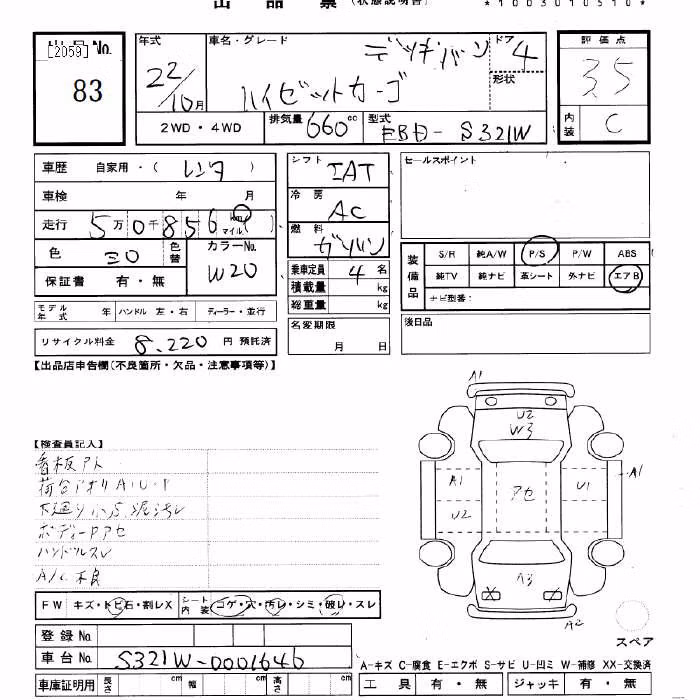 出品票（状態説明書）
*1003010510*
出品 No. [2059]
83
年式 22/10月
車名・グレード デッキバン
ハイゼットカーゴ
ドア 4
形状
評価点 3.5
内装 C
2WD・4WD
排気量 660cc
型式 EBD-S321W
車歴 自家用・( レンタ )
車検 年 月
走行 5万0千856 km マイル
色 シロ 色替
カラーNo. W20
保証書 有・無
モデル年式 年 ハンドル 左・右 ディーラー・並行
リサイクル料金 8,220 円 預託済
シフト IAT
冷房 AC
燃料 ガソリン
乗車定員 4 名
積載量 kg
総重量 kg
名変期限 月 日
セールスポイント
装備品
S/R 純A/W P/S P/W ABS
純TV 純ナビ 革シート 外ナビ エアB
ナビ型番：
後日品
【出品店申告欄(不良箇所・欠品・注意事項等)】
【検査員記入】
看板アト
荷台アオリA・U・P
下廻り小S 泥汚レ
ボディーPアセ
ハンドルスレ
A/C不良
A1
U2
W3
A1
U2
アセ
U1
A1
A3
A2
スペア
FW キズ・トビ石・割レX シート内装 コゲ・穴・汚レ・シミ・破レ・スレ
登録 No.
車台 No. S321W-0001646
車庫証明用 長さ cm 幅 cm 高さ cm
A-キズ C-腐食 E-エクボ S-サビ U-凹ミ W-補修 XX-交換済
工具 有・無 ジャッキ 有・無